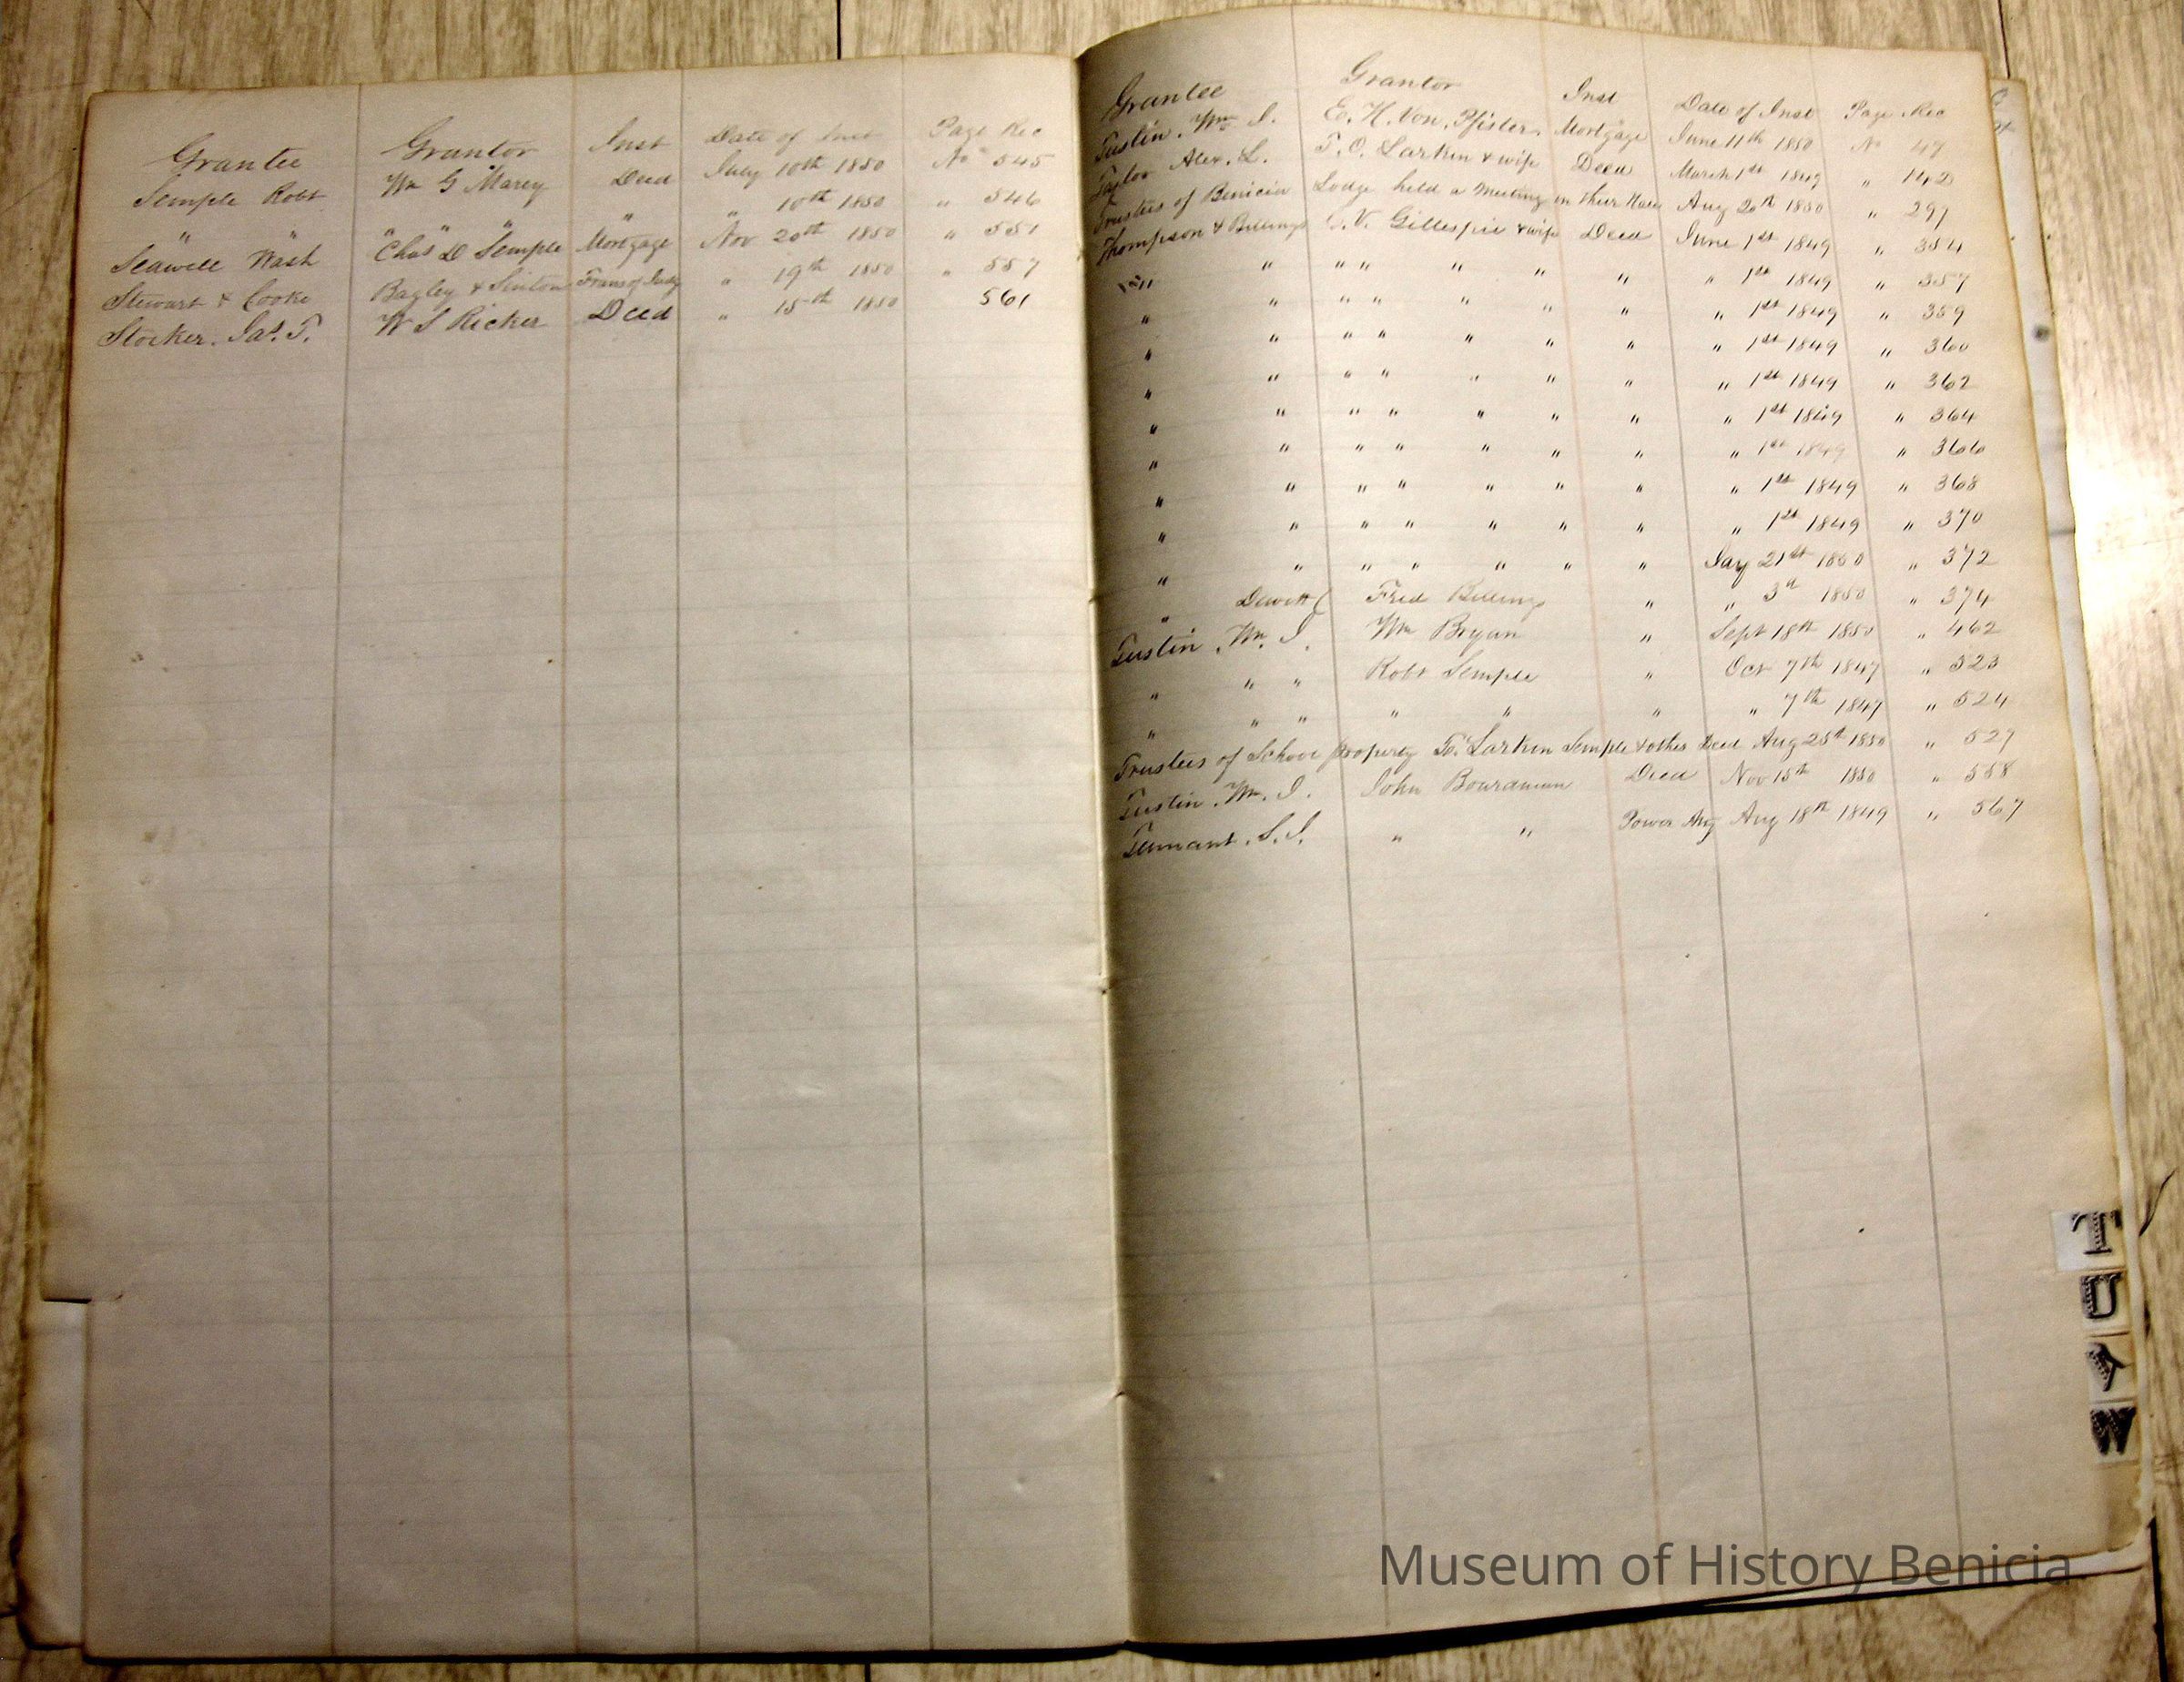 Grantee Grantor Inst Date of Inst Page Rec
Semple Robt Wm G Marcy Deed July 10th 1850 No 545
" " " " " " " 10th 1850 " 546
Seawell Wash Chas D Semple Mortgage Nov 20th 1850 " 551
Stewart & Cooke Bagley & Sinton Trans of Judg " 19th 1850 " 557
Stocker. Jas. T. W S Ricker Deed " 15th 1850 561
Grantee Grantor Inst Date of Inst Page Rec
Tustin. Wm I. E. H. Von. Pfister. Mortgage June 11th 1850 No 47
Taylor Alex. L. T. O. Larkin & wife Deed March 1st 1849 " 142
Trustees of Benicia Lodge held a Meeting in their Hall Aug 20th 1850 " 297
Thompson & Billings C. V. Gillespie & wife Deed June 1st 1849 " 354
" " " " " " " " 1st 1849 " 357
" " " " " " " " 1st 1849 " 359
" " " " " " " " 1st 1849 " 360
" " " " " " " " 1st 1849 " 362
" " " " " " " " 1st 1849 " 364
" " " " " " " " 1st 1849 " 366
" " " " " " " " 1st 1849 " 368
" " " " " " " " 1st 1849 " 370
" " " " " " " Jay 21st 1850 " 372
" Dewitt Fred Billings " " 3d 1850 " 374
Tustin. Wm. I. Wm Bryan " Sept 18th 1850 " 462
" " " Robt Semple " Oct 7th 1847 " 523
" " " " " " " 7th 1847 " 524
Trustees of School property To. Larkin Semple & others Deed Aug 25th 1850 " 527
Tustin. Wm. I. John Bourdman Deed Nov 15th 1850 " 558
Tennant. S. I. " " Power Atty Aug 18th 1849 " 567
T
U
W
Museum of History Benicia